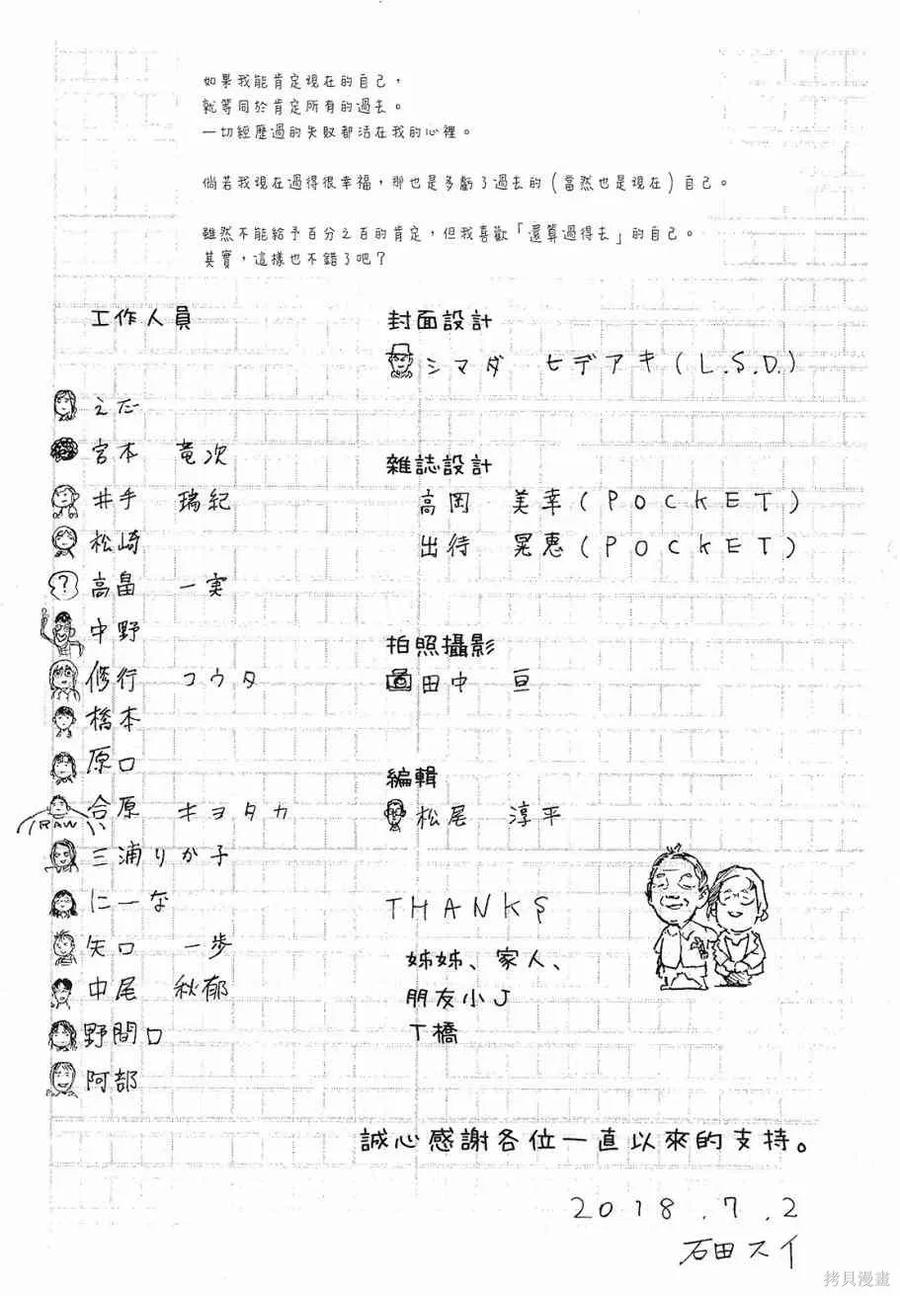 如果我能肯定現在的自己，
就等同於肯定所有的過去。
一切經歷過的失敗都活在我的心裡。
倘若我現在過得很幸福，那也是多虧了過去的(當然也是現在)自己。
雖然不能給予百分之百的肯定，但我喜歡「還算過得去」的自己。
其實，這樣也不錯了吧？
工作人員
えだ
宮本 竜次
井手 瑞紀
松崎
? 高畠 一実
中野
修行 コウタ
橋本
原口
合原 キヨタカ
RAW
三浦りか子
にーな
矢口 一歩
中尾 秋郁
野間口
阿部
封面設計
シマダ ヒデアキ(L.S.D.)
雜誌設計
高岡 美幸(POCKET)
出待 晃恵(POCKET)
拍照攝影
田中 亘
編輯
松尾 淳平
THANKS
姊姊、家人、
朋友小J
T橋
誠心感謝各位一直以來的支持。
2018.7.2
石田スイ
拷貝漫畫